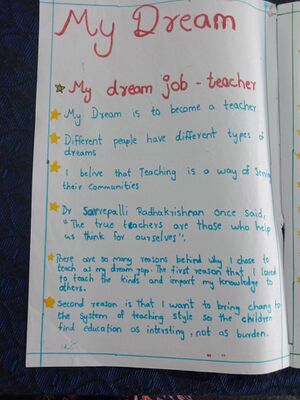 My Dream
My dream job - teacher
My Dream is to become a teacher
Different people have different types of
dreams
I belive that Teaching is a way of serving
their communities
Dr Sarvepalli Radhakrishnan once said,
"The true teachers are those who help
us think for ourselves".
There are so many reasons behind why I chose to
teach as my dream jop. The first reason that I loved
to teach the kinds and impart my knowledge to
others.
Second reason is that I want to bring change to
the system of teaching style so the children
find education as intersting, not as burden.